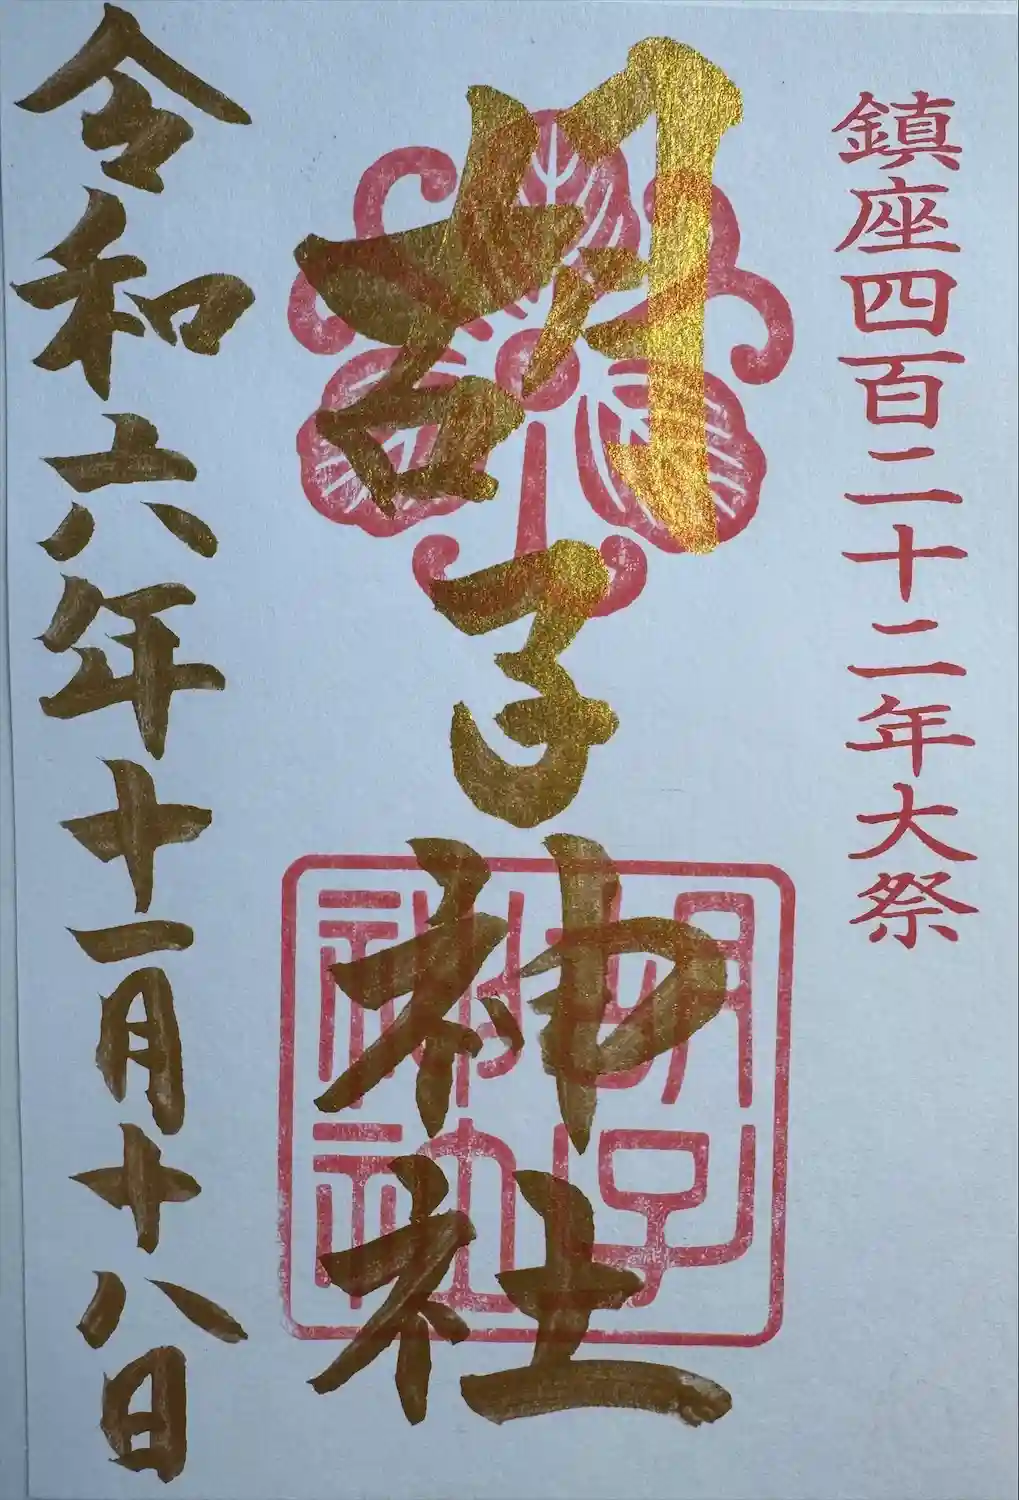 鎮座四百二十二年大祭
胡子神社
令和六年十一月十八日
胡子
神社